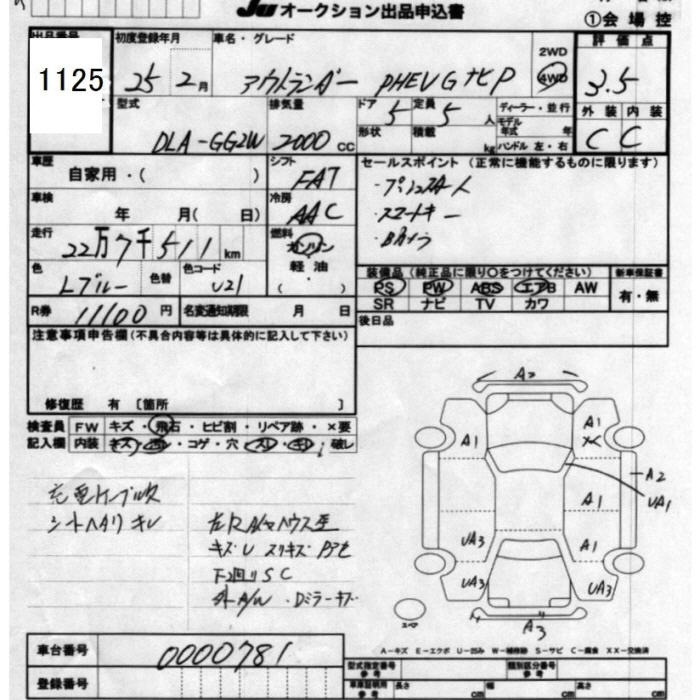 JU オークション出品申込書
①会場控
出品番号 初度登録年月 車名・グレード 2WD 4WD 評価点
1125 25 2月 アウトランダー PHEV GナビP 3.5
型式 排気量 ドア 5 定員 5人 ディーラー・並行 外装 内装
DLA-GG2W 2000cc 形状 積載 kg モデル年式 年 ハンドル 左・右 C C
車歴 シフト セールスポイント(正常に機能するものに限ります)
自家用・( ) FAT
・スマートキー
車検 年 月( 日) 冷房 AAC
走行 22万7千511km 燃料 ガソリン
軽油
( )
色 色替 色コード
Lブルー U21
装備品(純正品に限り○をつけてください) 新車保証書
PS PW ABS エアB AW 有・無
SR ナビ TV カワ
R券 11100円 名変通知期限 月 日
後日品
注意事項申告欄(不具合内容等は具体的に記入して下さい)
修復歴 有 〔箇所 〕
検査員 FW キズ・飛石・ヒビ割・リペア跡・×要
記入欄 内装 キズ・汚・コゲ・穴・スレ・キレ・破レ
充電ケーブル欠
シートヘタリ キレ
キズU スリキズ
F2回りSC
外A/W・Dミラーキズ
A2
A1
A1
A2
UA1
A1
UA3
A1
UA3
UA3
A3
スペア
A-キズ E-エクボ U-凹み W-補修跡 S-サビ C-腐食 XX-交換済
車台番号 0000781
型式指定番号 参考 類別区分番号 参考
登録番号
車庫証明用 参考 長さ cm 幅 cm 高さ cm